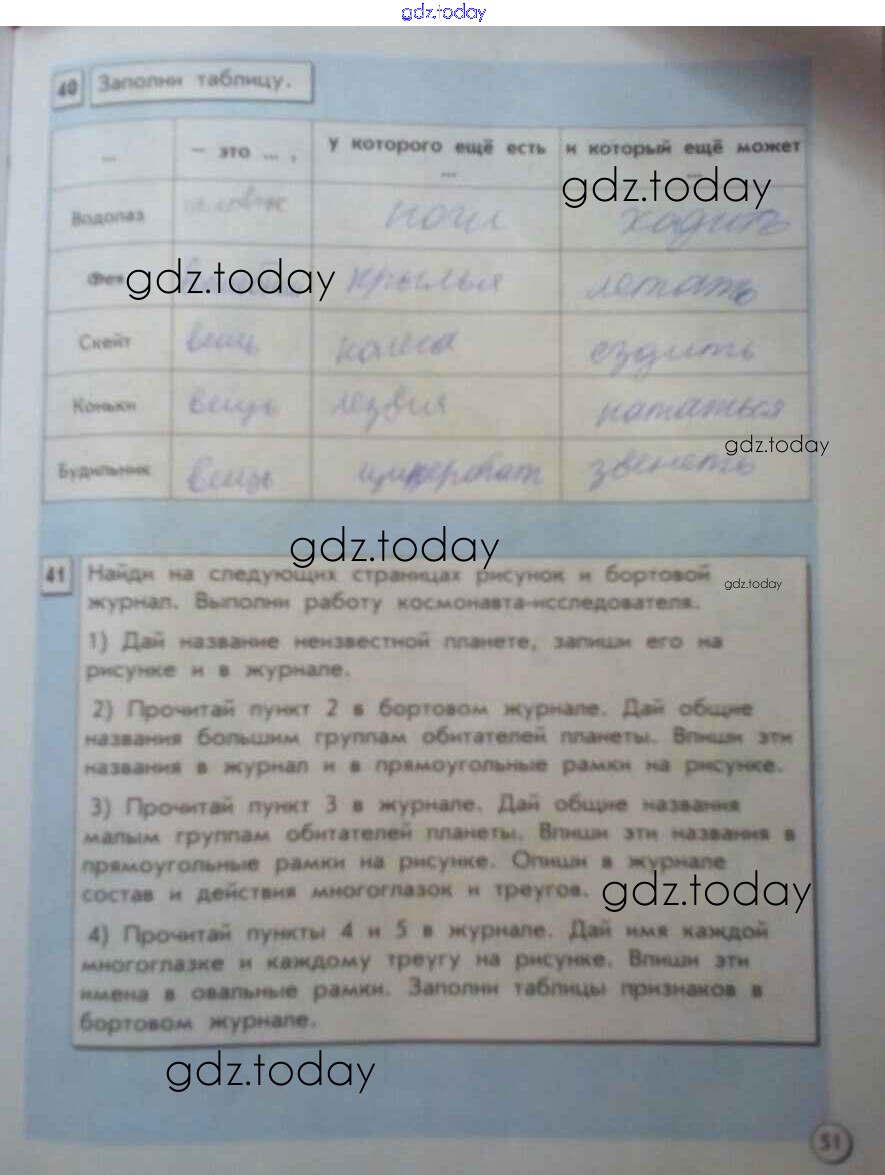 gdz.today
40 Заполни таблицу.
... – это ... , у которого ещё есть ... и который ещё может ...
gdz.today
Водолаз человек ноги ходить
Фея крылья летать
gdz.today
Скейт вещь колеса ездить
Коньки вещь лезвия кататься
gdz.today
Будильник вещь звенеть
gdz.today
41 Найди на следующих страницах рисунок и бортовой
gdz.today
журнал. Выполни работу космонавта-исследователя.
1) Дай название неизвестной планете, запиши его на
рисунке и в журнале.
2) Прочитай пункт 2 в бортовом журнале. Дай общие
названия большим группам обитателей планеты. Впиши эти
названия в журнал и в прямоугольные рамки на рисунке.
3) Прочитай пункт 3 в журнале. Дай общие названия
малым группам обитателей планеты. Впиши эти названия в
прямоугольные рамки на рисунке. Опиши в журнале
состав и действия многоглазок и треугов.
gdz.today
4) Прочитай пункты 4 и 5 в журнале. Дай имя каждой
многоглазке и каждому треугу на рисунке. Впиши эти
имена в овальные рамки. Заполни таблицы признаков в
бортовом журнале.
gdz.today
51